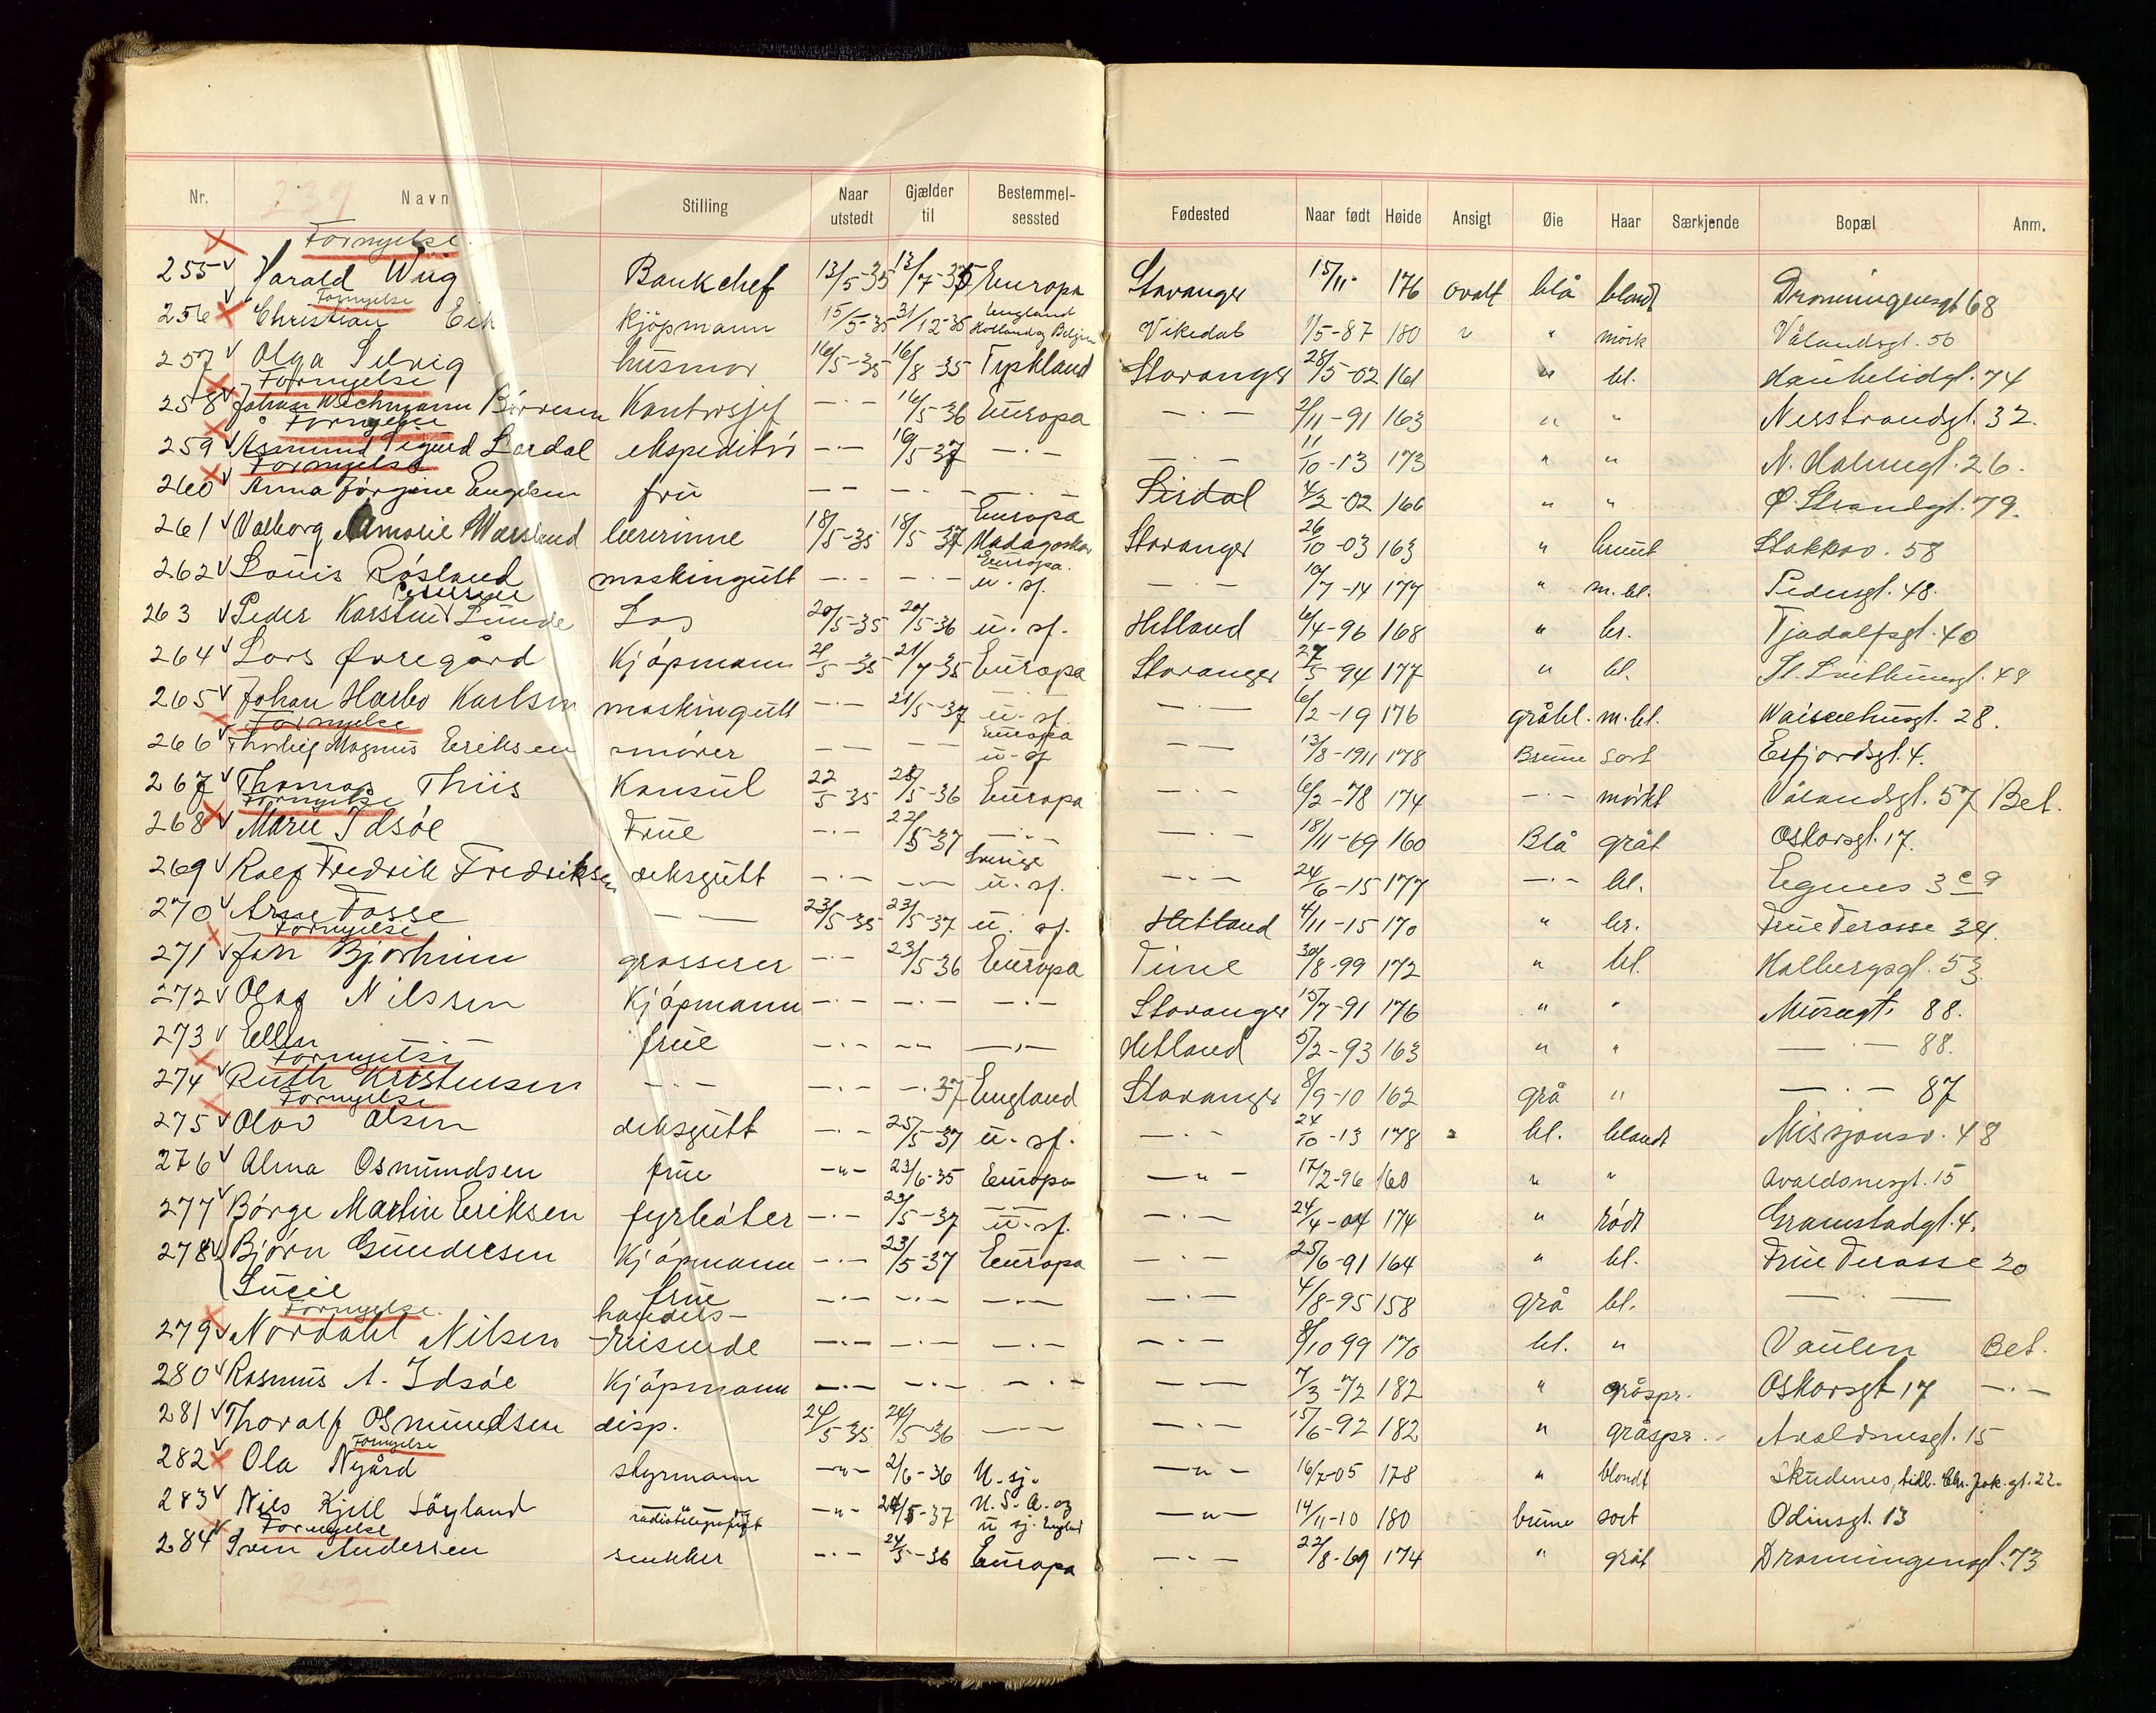 Nr. Navn Stilling Naar utstedt Gjælder til Bestemmel-sessted Fødested Naar født Høide Ansigt Øie Haar Særkjende Bopæl Anm.
Fornyelse.
255 Harald Wiig Bankchef 13/5-35 13/7-35 Europa Stavanger 15/11- 176 ovalt blå blondt Dronningensgt 68
Fornyelse
256 Christian Eik Kjöpmann 15/5-35 31/12-35 England Holland og Belgien Vikedal 1/5-87 180 " " mörk Vålandsgt. 56
257 Olga Selvig husmor 16/5-35 16/8-35 Tyskland Stavanger 28/5-02 161 " bl. Haukelidgt. 74
Fornyelse
258 Johan Wechmann Börresen Kontorsjef -·- 16/5-36 Europa -·- 2/11-91 163 " " Nesstrandgt. 32.
Fornyelse
259 Åsmund Sigurd Lardal ekspeditör -·- 16/5-37 -·- -·- 11/10-13 173 " " N. Holmegt. 26.
Fornyelse
260 Anna Jörgine Engelsen fru -- -·- -·- Sirdal 4/2-02 166 " " Ø. Strandgt. 79.
261 Valborg Amorie lærerinne 18/5-35 18/5-37 Europa Madagaskar Stavanger 26/10-03 163 " brunt Stokkav. 58
262 Louis Rösland maskingutt -·- -·- Europa. u. sj. -·- 10/7-14 177 " m. bl. Pedersgt. 48.
263 Peder Karsten Petersen Lunde Los 20/5-35 20/5-36 u. sj. Hetland 6/4-96 168 " br. Tjodolfsgt. 40
264 Lars Øvregård Kjöpmann 21/5-35 21/7-35 Europa Stavanger 27/5-94 177 " bl. St. Svithunsgt. 48
265 Johan Harbo Karlsen maskingutt -·- 21/5-37 u. sj. -·- 6/2-19 176 gråbl. m. bl. Waisenhusgt. 28.
Fornyelse
266 Thorleif Magnus Eriksen smörer -- -- Europa u. sj -- 13/8-1911 178 Brune sort Erfjordsgt. 4.
267 Thomas Thiis Konsul 22/5-35 22/5-36 Europa -·- 6/2-78 174 -·- mörkt Vålandsgt. 57 Bet.
Fornyelse
268 Marie Idsöe Frue -·- 22/5-37 -·- -·- 18/11-69 160 Blå grått Oskarsgt. 17.
269 Rolf Fredrik Fredriksen deksgutt -·- -- Sverige u. sj. -·- 24/6-15 177 -·- bl. Egenes 3
270 Arne Fosse -- 23/5-35 23/5-37 u. sj. Hetland 4/11-15 170 " br. Frue Terasse 34.
Fornyelse
271 Jon Bjorheim grosserer -·- 23/5-36 Europa Time 30/8-99 172 " bl. Holbergsgt. 53
272 Olaf Nilssen Kjöpmann -·- -·- -·- Stavanger 15/7-91 176 " " Muségt. 88.
273 Ellen -- frue -·- -- -·- Hetland 5/2-93 163 " " -·- 88.
Fornyelse
274 Ruth Kristensen -·- -·- -·37 England Stavanger 8/9-10 162 grå " -·- 87
Fornyelse
275 Olav Olsen deksgutt -·- 25/5-37 u. sj. -·- 24/10-13 178 " bl. blondt Misjonsv. 48
276 Alma Osmundsen frue -"- 23/6-35 Europa -"- 17/2-96 160 " " Avaldsnesgt. 15
277 Börge Martin Eriksen fyrböter -·- 23/5-37 -- u. sj. -·- 24/4-04 174 " rödt Gramstadgt. 4.
278 Björn Gundersen Kjöpmann -·- 23/5-37 Europa -·- 25/6-91 164 " bl. Frue Terasse 20
Lucie frue -·- -·- -·- -·- 4/8-95 158 grå bl. -·-
Fornyelse.
279 Nordahl Nilsen handels-reisende -·- -·- -·- -·- 8/10 99 170 bl. " Vaulen Bet.
280 Rasmus A. Idsöe Kjöpmann -·- -·- -·- -- 7/3-72 182 " gråspr. Oskarsgt 17 -·-
281 Thoralf Osmundsen disp. 24/5-35 24/5-36 -- -·- 15/6-92 182 " gråspr. Avaldsnesgt. 15
Fornyelse
282 Ola Nygård styrmann -"- 2/6-36 U. sj. -"- 16/7-05 178 " blondt Skudenes, tidl. Chr. Jak. gt. 22.
283 Nils Kjell Söyland radiotelegrafist -"- 24/5-37 U. S. A. og u sj. England -"- 14/11-10 180 brune sort Odinsgt. 13
Fornyelse
284 Sven Andersen snekker -·- 24/5-36 Europa -·- 22/8-69 174 " grått Dronningensgt. 73